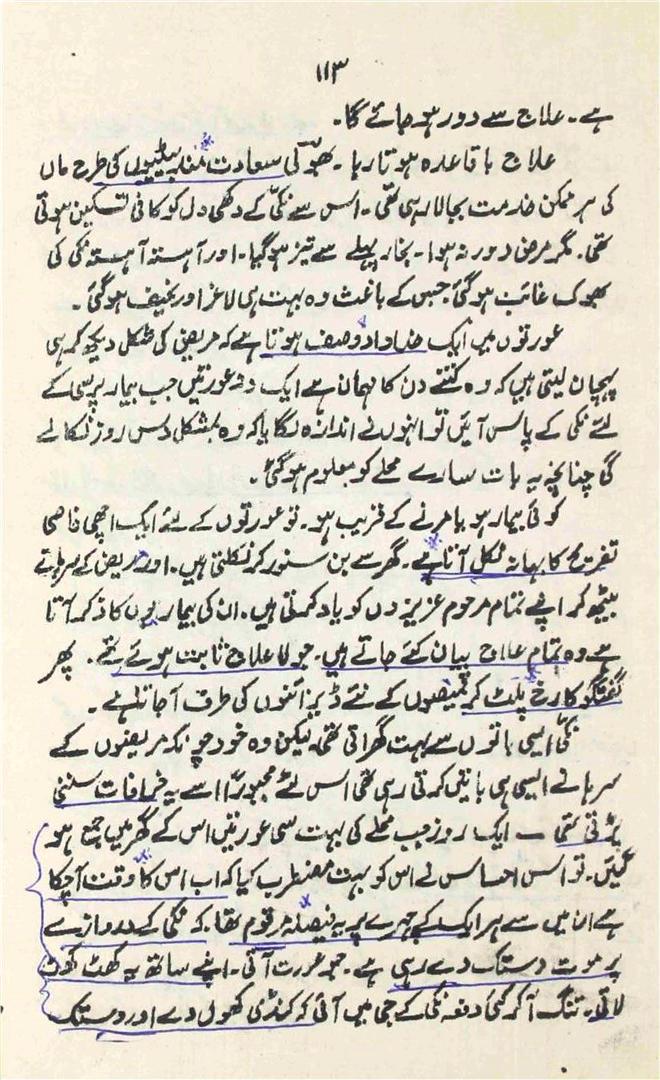 ۱۱۳
ہے۔ علاج سے دور ہو جائے گا۔
علاج باقاعدہ ہوتا رہا۔ بھولی سعادت مند بیٹیوں کی طرح ماں
کی ہر ممکن خدمت بجا لا رہی تھی۔ اس سے نکی کے دکھی دل کو کافی تسکین ہوتی
تھی۔ مگر مرض دور نہ ہوا۔ بخار پہلے سے تیز ہو گیا۔ اور آہستہ آہستہ نکی کی
بھوک غائب ہو گئی جس کے باعث وہ بہت ہی لاغر اور نحیف ہو گئی۔
عورتوں میں ایک خداداد وصف ہوتا ہے کہ مریض کی شکل دیکھ کر ہی
پہچان لیتی ہیں کہ وہ کتنے دن کا مہمان ہے ایک دو عورتیں جب بیمار پرسی کے
لئے نکی کے پاس آئیں تو انہوں نے اندازہ لگایا کہ وہ بمشکل دس روز نکالے
گی چنانچہ یہ بات سارے محلے کو معلوم ہو گئی۔
کوئی بیمار ہو یا مرنے کے قریب ہو۔ تو عورتوں کے لئے ایک اچھی خاصی
تفریح کا بہانہ نکل آتا ہے۔ گھر سے بن سنور کر نکلتی ہیں۔ اور مریض کے سرہانے
بیٹھ کر اپنے تمام مرحوم عزیزوں کو یاد کرتی ہیں۔ ان کی بیماریوں کا ذکر آتا
ہے وہ تمام علاج بیان کئے جاتے ہیں۔ جو لا علاج ثابت ہوئے تھے۔ پھر
گفتگو کا رخ پلٹ کر قمیصوں کے نئے ڈیزائنوں کی طرف آ جاتا ہے۔
نکی ایسی باتوں سے بہت گھبراتی تھی لیکن وہ خود چونکہ مریضوں کے
سرہانے ایسی ہی باتیں کرتی رہی تھی اس لئے مجبوراً اسے یہ خرافات سننی
پڑتی تھی۔ ایک روز جب محلے کی بہت سی عورتیں اس کے گھر میں جمع ہو
گئیں۔ تو اس احساس نے اس کو بہت مضطرب کیا کہ اب اس کا وقت آ چکا
ہے ان میں سے ہر ایک کے چہرے پر یہ فیصلہ مرقوم تھا۔ کہ نکی کے دروازے
پر موت دستک دے رہی ہے۔ جو عورت آتی۔ اپنے ساتھ یہ کھٹ کھٹ
لاتی۔ تنگ آ کر کئی دفعہ نکی کے جی میں آئی کہ کنڈی کھول دے اور دستک